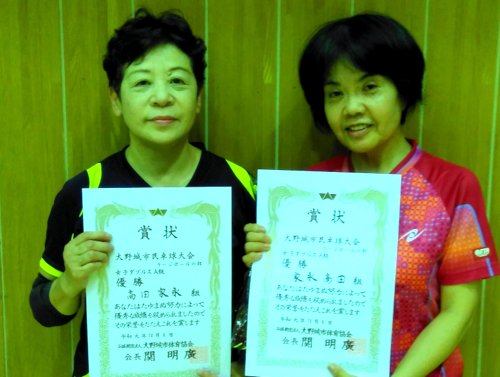 賞状
大野城市民卓球大会
女子ダブルスA級
優勝
高田 家永 組
あなたはたゆまぬ努力によって
優秀な成績を収められましたので
その栄誉をたたえこれを賞します
大野城市体育協会
会長 関 明廣
賞状
大野城市民卓球大会
女子ダブルスA級
優勝
家永 高田 組
あなたはたゆまぬ努力によって
優秀な成績を収められましたので
その栄誉をたたえこれを賞します
大野城市体育協会
会長 関 明廣